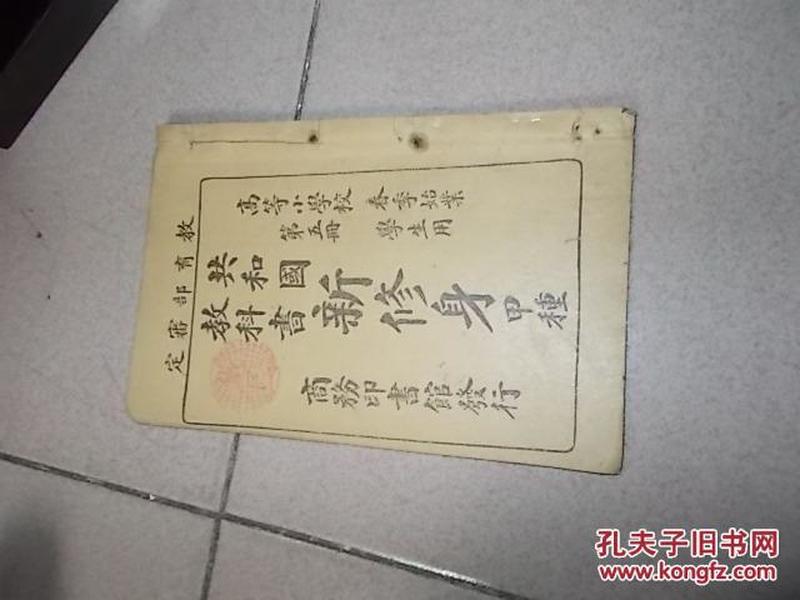 教育部審定
高等小學校
春季始業
第五冊
學生用
共和國
教科書
新修身
甲種
商務印書館發行
孔夫子旧书网
www.kongfz.com